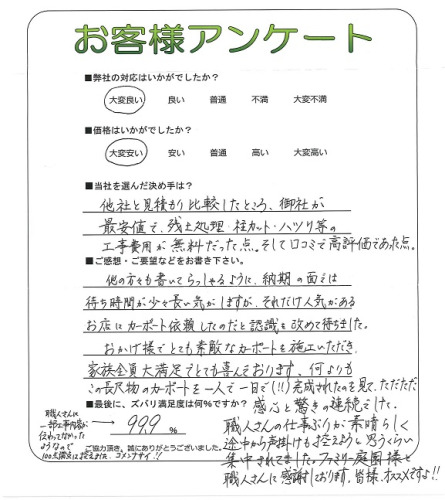 お客様アンケート
■弊社の対応はいかがでしたか?
大変良い 良い 普通 不満 大変不満
■価格はいかがでしたか?
大変安い 安い 普通 高い 大変高い
■当社を選んだ決め手は?
他社と見積もり比較したところ、御社が
最安値で、残土処理・柱カット・ハツリ等の
工事費用が無料だった点。そして口コミで高評価であった点。
■ご感想・ご要望などをお書き下さい。
他の方々も書いてらっしゃるように、納期の面では
待ち時間が少々長い気がしますが、それだけ人気がある
お店にカーポート依頼したのだと認識を改めて待ちました。
おかげ様でとても素敵なカーポートを施工いただき、
家族全員大満足でとても喜んでおります。何よりも
この長尺物のカーポートを一人で一日で(!!)完成されたのを見て、ただただ
感心と驚きの連続でした。
■最後に、ズバリ満足度は何%ですか?
99.9 %
職人さんの仕事ぶりが素晴らしく
途中から声掛けも控えようと思うくらい
集中されてました。ファミリー庭園様と
職人さんに感謝しております。皆様、オススメですよ!!
職人さんに
一部工事内容が
伝わってなかった
ようなので
100点満点は控えました。ゴメンナサイ!!
ご協力頂き、誠にありがとうございました。